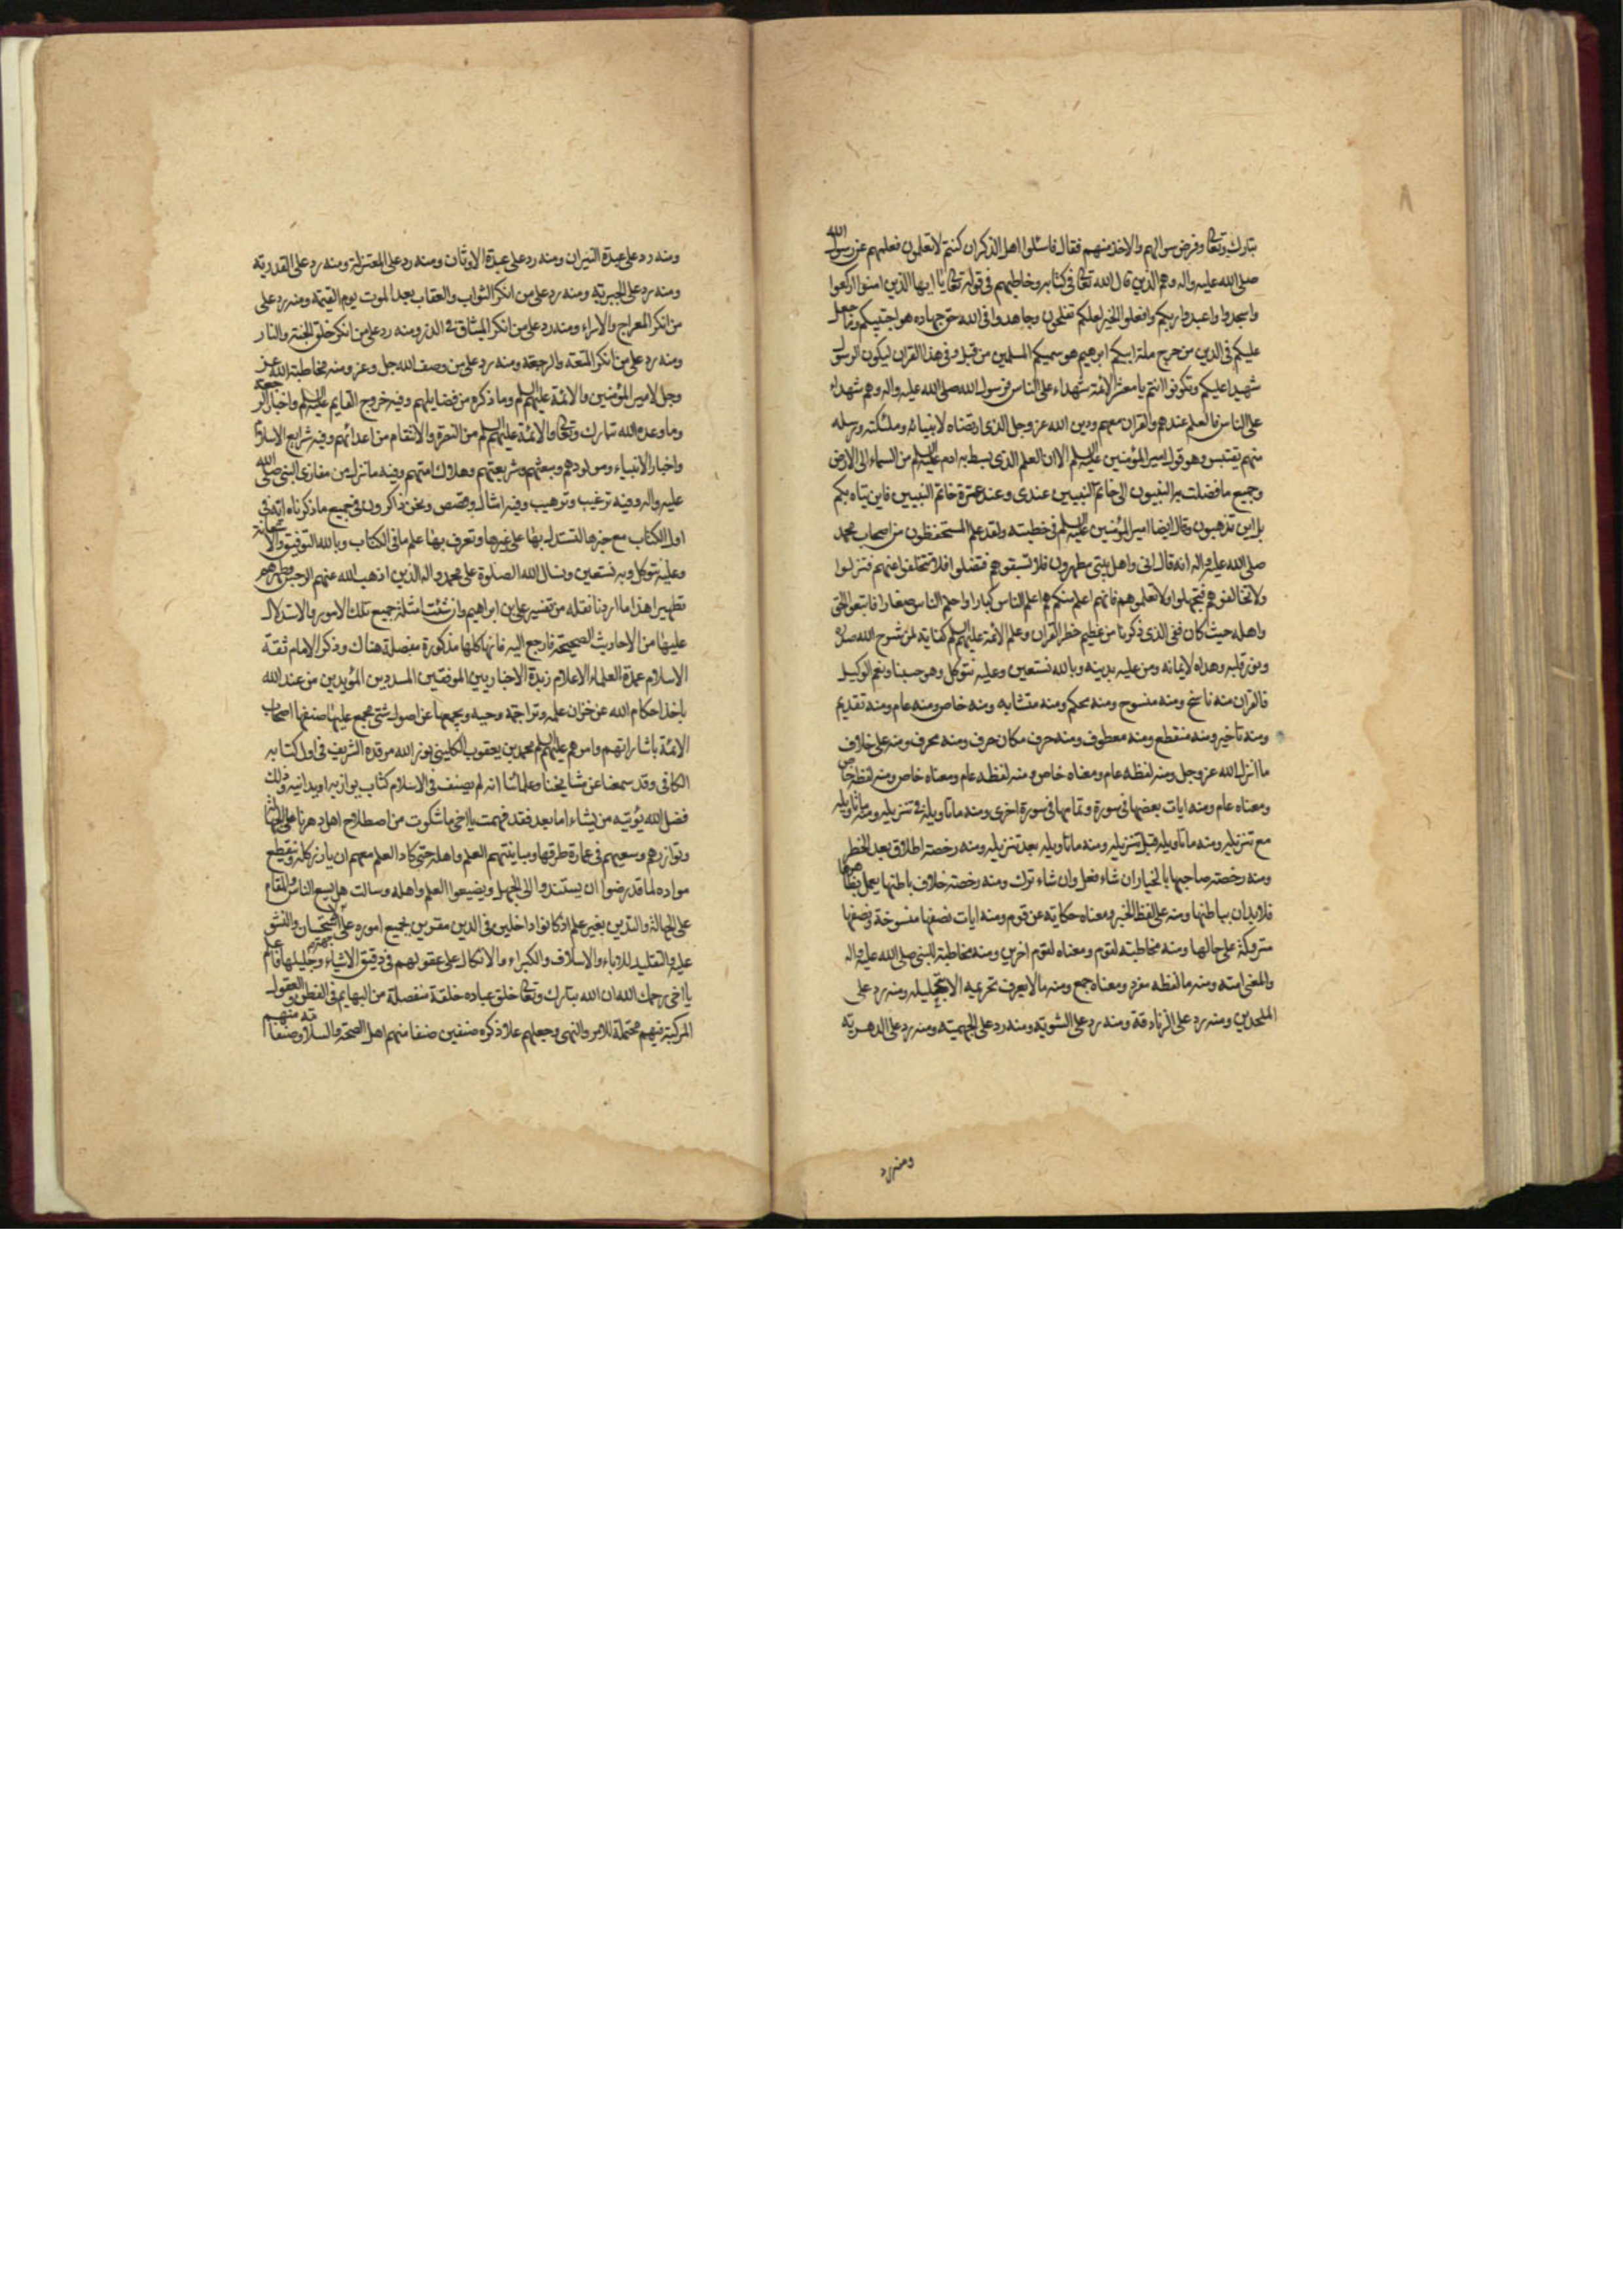 تبارك وتعالى وفرض سوالهم والاخذ منهم فقال فاسئلوا اهل الذكر ان كنتم لا تعلمون فعلمهم عن رسول الله
صلى الله عليه واله وهم الذين قال الله تعالى في كتابه وخاطبهم في قوله تعالى يا ايها الذين امنوا اركعوا
واسجدوا واعبدوا ربكم وافعلوا الخير لعلكم تفلحون وجاهدوا في الله حق جهاده هو اجتبيكم وما جعل
عليكم في الدين من حرج ملة ابيكم ابرهيم هو سميكم المسلمين من قبل وفي هذا القران ليكون الرسول
شهيدا عليكم وتكونوا انتم يا معشر الائمة شهداء على الناس فرسول الله صلى الله عليه واله وهم شهداء
على الناس فالعلم عندهم والقران معهم ودين الله عز وجل الذي ارتضاه لانبيائه وملئكته ورسله
منهم يقتبس وهو قول امير المؤمنين عليه السلم الا ان العلم الذي هبط به ادم عليه السلم من السماء الى الارض
وجميع ما فضلت به النبيون الى خاتم النبيين عندي وعند عترة خاتم النبيين فاين يتاه بكم
بل اين تذهبون وقال ايضا امير المؤمنين عليه السلم في خطبته ولقد علم المستحفظون من اصحاب محمد
صلى الله عليه واله انه قال اني واهل بيتي مطهرون فلا تسبقوهم فتضلوا فلا تتخلفوا عنهم فتزلوا
ولا تخالفوهم فتجهلوا ولا تعلموهم فانهم اعلم منكم هم اعلم الناس كبارا واحلم الناس صغارا فاتبعوا الحق
واهله حيث كان ففي الذي ذكرنا من عظيم خطر القران وعلم الائمة عليهم السلم كفاية لمن شرح الله صدره
ونور قلبه وهداه لايمانه ومن عليه بدينه وبالله نستعين وعليه نتوكل وهو حسبنا ونعم الوكيل
فالقران منه ناسخ ومنه منسوخ ومنه محكم ومنه متشابه ومنه خاص ومنه عام ومنه تقديم
ومنه تاخير ومنه منقطع ومنه معطوف ومنه حرف مكان حرف ومنه محرف ومنه على خلاف
ما انزل الله عز وجل ومنه لفظه عام ومعناه خاص ومنه لفظه عام ومعناه خاص ومنه لفظه خاص
ومعناه عام ومنه ايات بعضها في سورة وتمامها في سورة اخرى ومنه ما تاويله في تنزيله ومنه ما تاويله
مع تنزيله ومنه ما تاويله قبل تنزيله ومنه ما تاويله بعد تنزيله ومنه رخصة اطلاق بعد الحظر
ومنه رخصة صاحبها بالخيار ان شاء فعل وان شاء ترك ومنه رخصة خلاف باطنها يعمل بظاهرها
فلا يدان بباطنها ومنه على لفظ الخبر ومعناه حكاية عن قوم ومنه ايات نصفها منسوخة ونصفها
متروكة على حالها ومنه مخاطبة لقوم ومعناه لقوم اخرين ومنه مخاطبة النبي صلى الله عليه واله
والمعنى امته ومنه ما لفظه مفرد ومعناه جمع ومنه ما لا يعرف تحريمه الا بتحليله ومنه رد على
الملحدين ومنه رد على الزنادقة ومنه رد على الثنوية ومنه رد على الجهمية ومنه رد على الدهرية
ومنه رد
ومنه رد على عبدة النيران ومنه رد على عبدة الاوثان ومنه رد على المعتزلة ومنه رد على القدرية
ومنه رد على الجبرية ومنه رد على من انكر الثواب والعقاب بعد الموت يوم القيمة ومنه رد على
من انكر المعراج والاسراء ومنه رد على من انكر الميثاق في الذر ومنه رد على من انكر خلق الجنة والنار
ومنه رد على من انكر المتعة والرجعة ومنه رد على من وصف الله جل وعز ومنه مخاطبة الله عز
وجل لامير المؤمنين والائمة عليهم السلم وما ذكره من فضايلهم وفيه خروج القايم عليه السلم واخبار الرجعة
وما وعده الله تبارك وتعالى الائمة عليهم السلم من النصرة والانتقام من اعدائهم وفيه شرايع الاسلام
واخبار الانبياء ومولودهم وبعثهم وشريعتهم وهلاك امتهم وفيه ما نزل من مغازي النبي صلى الله
عليه واله وفيه ترغيب وترهيب وفيه امثال وقصص ونحن ذاكرون في جميع ما ذكرناه اية في
اول الكتاب مع خبرها لتستدل بها على غيرها وتعرف بها علم ما في الكتاب وبالله التوفيق والاستعانة
وعليه نتوكل وبه نستعين ونسال الله الصلوة على محمد واله الذين اذهب الله عنهم الرجس وطهرهم
تطهيرا هذا ما اردنا نقله من تفسير علي بن ابراهيم وان شئت امثلة جميع تلك الامور والاستدلال
عليها من الاحاديث الصحيحة فارجع اليه فانها كلها مذكورة مفصلة هناك وذكر الامام ثقة
الاسلام عمدة العلماء الاعلام زبدة الاخباريين الموفقين المسددين المؤيدين من عند الله
باخذ احكام الله عن خزان علمه وتراجمة وحيه وبجمعها عن اصول شتى مجمع عليها صنفها اصحاب
الائمة باشاراتهم وامرهم عليهم السلم محمد بن يعقوب الكليني نور الله مرقده الشريف في اول كتابه
الكافي وقد سمعنا عن مشايخنا وعلمائنا انه لم يصنف في الاسلام كتاب يوازيه او يدانيه وذلك
فضل الله يؤتيه من يشاء اما بعد فقد فهمت يا اخي ما شكوت من اصطلاح اهل دهرنا على الجهالة
وتوازرهم وسعيهم في عمارة طرقها ومباينتهم العلم واهله حتى كاد العلم معهم ان يازر كله وينقطع
مواده لما قد رضوا ان يستندوا الى الجهل ويضيعوا العلم واهله وسالت هل يسع الناس المقام
على الجهالة والتدين بغير علم اذ كانوا داخلين في الدين مقرين بجميع اموره على الاستحسان والنشو
عليه والتقليد للاباء والاسلاف والكبراء والاتكال على عقولهم في دقيق الاشياء وجليلها فاعلم
يا اخي رحمك الله ان الله تبارك وتعالى خلق عباده خلقة منفصلة من البهايم في الفطن والعقول
المركبة فيهم محتملة للامر والنهي وجعلهم جل ذكره صنفين صنفا منهم اهل الصحة والسلامة وصنفا منهم